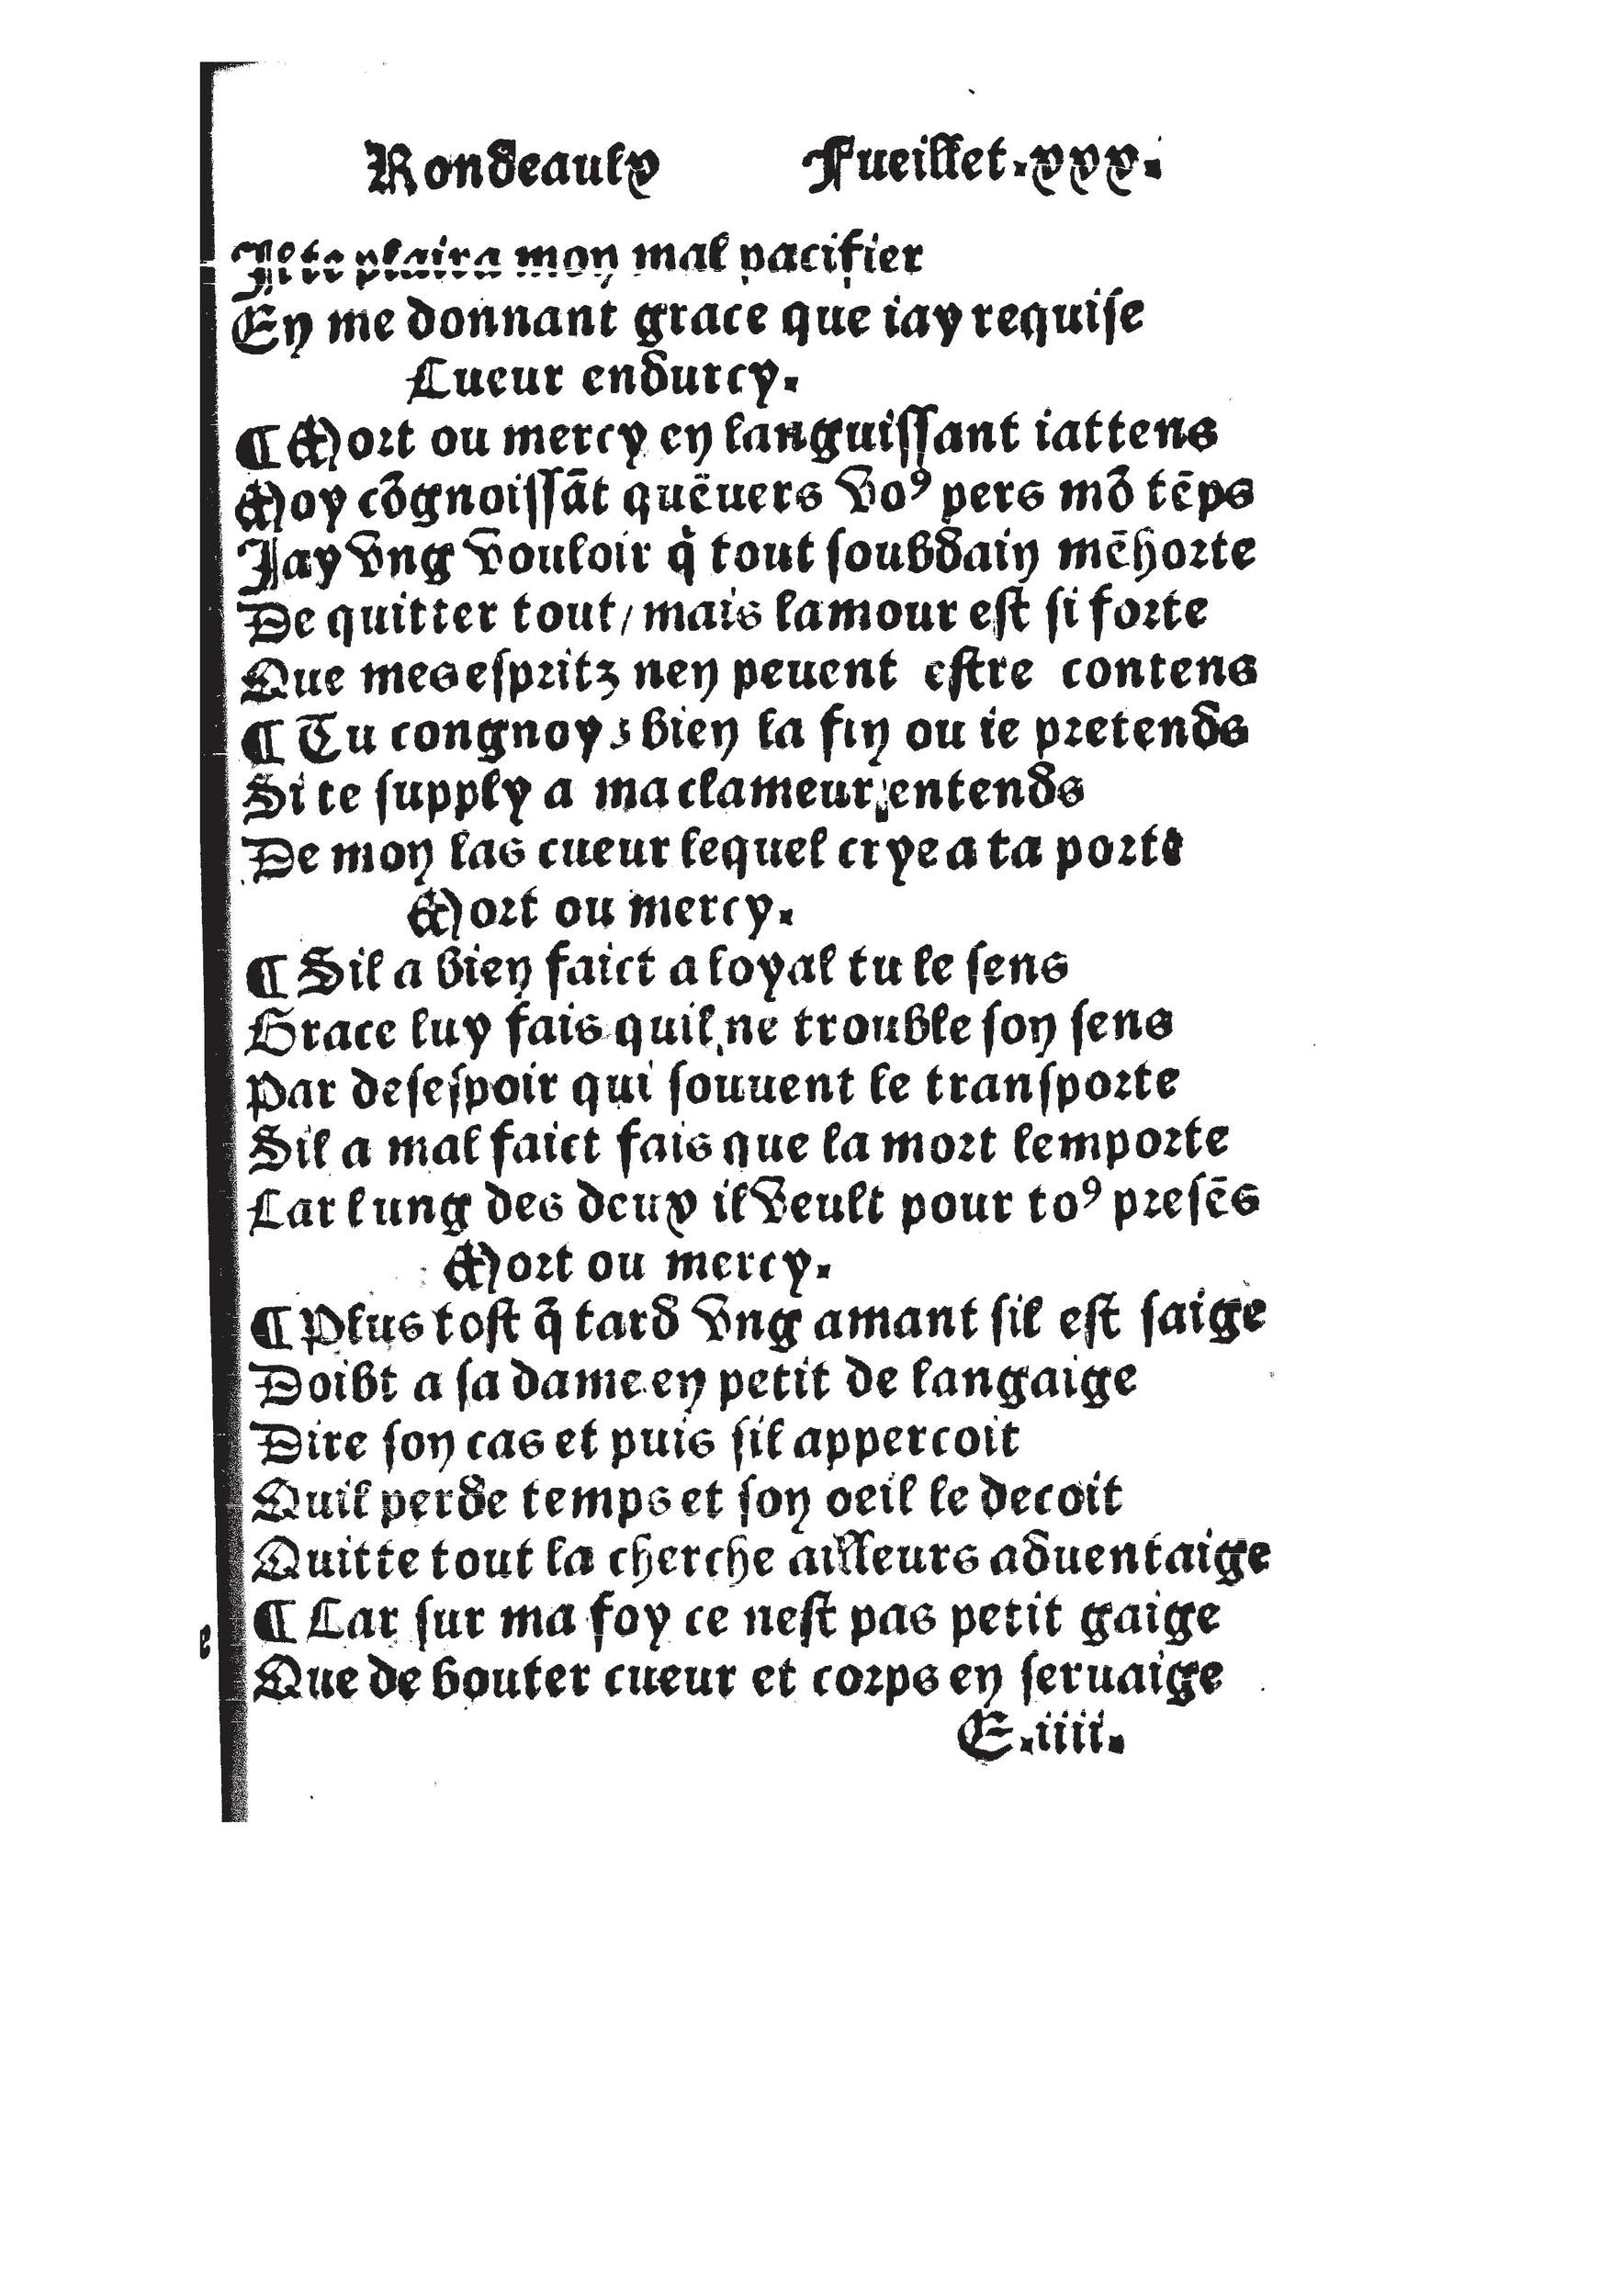 Rondeaulx Fueillet.xxx.
Il te plaira mon mal pacifier
En me donnant grace que iay requiſe
Cueur endurcy.
¶ Mort ou mercy en languiſſant iattens
Moy cõgnoiſſãt quẽuers voꝰ pers mõ tẽps
Jay vng vouloir q̇ tout ſoubdain mẽhorte
De quitter tout/ mais lamour eſt ſi forte
Que mes eſpritz nen peuent eſtre contens
¶ Tu congnoyz bien la fin ou ie pretends
Si te ſupply a ma clameur entends
De mon las cueur lequel crye a ta porte
Mort ou mercy.
¶ Sil a bien faict a loyal tu le ſens
Grace luy fais quil ne trouble ſon ſens
Par deſeſpoir qui ſouuent le tranſporte
Sil a mal faict fais que la mort lemporte
Car lung des deux il veult pour toꝰ preſẽs
Mort ou mercy.
¶ Plus toſt q̃ tard vng amant ſil eſt ſaige
Doibt a ſa dame en petit de langaige
Dire ſon cas et puis ſil appercoit
Quil perde temps et ſon oeil le decoit
Quitte tout la cherche ailleurs aduentaige
¶ Car ſur ma foy ce neſt pas petit gaige
Que de bouter cueur et corps en ſeruaige
E.iiii.